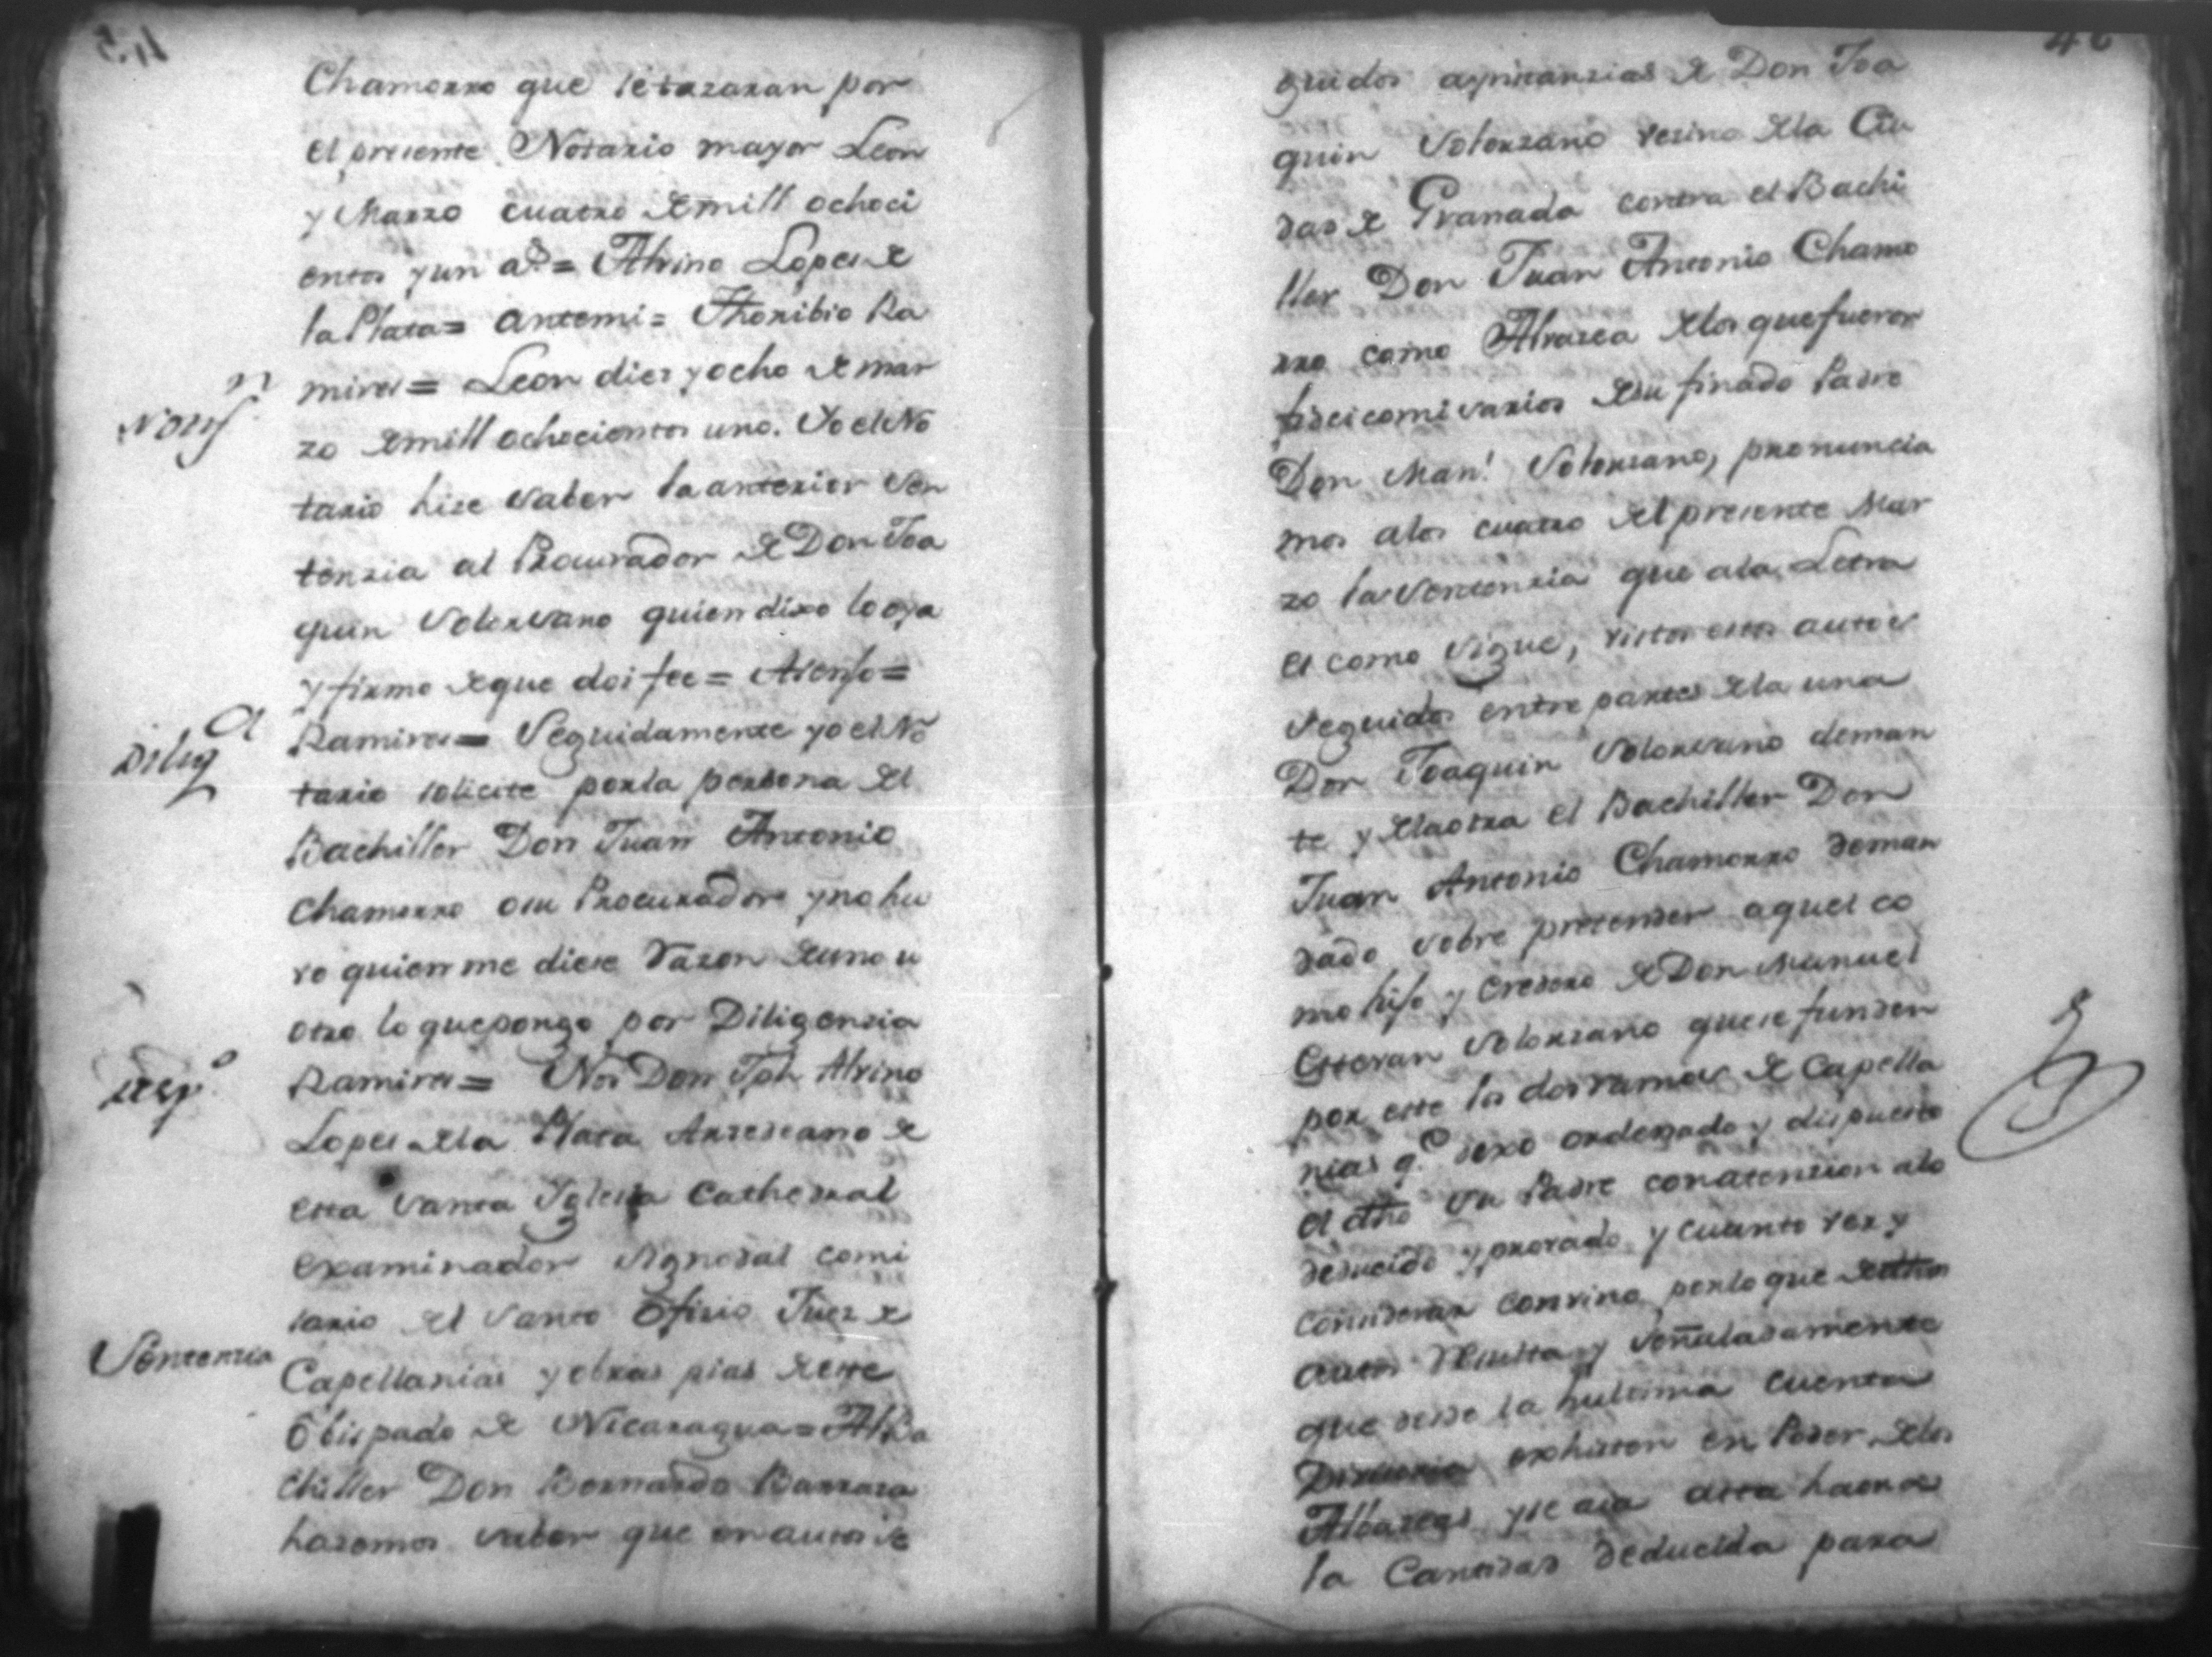 45
Chamorro que se tazaran por
el presente Notario mayor Leon
y Marzo cuatro de mill ochoci
entos y un a.s = Alvino Lopes de
la Plata = Antemi = Thoribio Ra
mires = Leon dies y ocho de mar
Notif.n
zo de mill ochocientos uno. Yo el No
tario hize saber la anterior Sen
tenzia al Procurador de Don Joa
quin Solorsano quien dixo lo oya
y firmo de que doi fee = Asenso =
Dilig.a
Ramires = Seguidamente yo el No
tario solicite por la persona del
Bachiller Don Juan Antonio
Chamorro o su Procurador y no hu
vo quien me diese razon de uno u
otro lo que pongo por Diligenzia
Ramires = Nos Don Jph Alvino
Desp.o
Lopes de la Plata Arzedeano de
esta Santa Iglesia Cathedral
examinador Signodal comi
sario del Santo Ofizio Juez de
Sentenzia
Capellanias y obras pias de este
Obispado de Nicaragua = Al Ba
chiller Don Bernardo Barraza
hazemos saber que en autos se
46
guidos a ynstanzias de Don Joa
quin Solorzano vezino de la Ciu
dad de Granada contra el Bachi
ller Don Juan Antonio Chamo
rro como Alvazea de los que fueron
fideicomisarios de su finado Padre
Don Man.l Solorzano, pronuncia
mos a los cuatro del presente Mar
zo la Sentenzia que a la Letra
es como sigue, vistos estos autos
seguidos entre partes de la una
Don Joaquin Solorsano deman
te y de la otra el Bachiller Don
Juan Antonio Chamorro deman
dado sobre pretender aquel co
mo hijo y eredero de Don Manuel
Estevan Solorzano que se funden
por este los dos ramos de Capella
nias q.e dexo ordenado y dispuesto
el dho su Padre con atenzion a lo
deducido y provado y cuanto ver y
considerar convino por lo que de dhos
autos Resulta y señaladamente
que desde la hultima cuenta
exhisten en Poder de los
Albazeas y se aia asta haora
la Cantidad deducida para